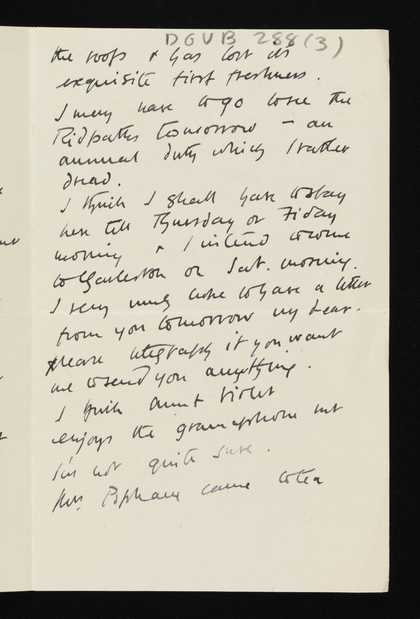 DGUB 288 (3)
the roofs & has lost its
exquisite first freshness.
I may have to go to see the
Ridpaths tomorrow – an
annual duty which I rather
dread.
I think I shall have to stay
here till Thursday or Friday
morning & I intend to come
to Charleston on Sat. morning.
I very much hope to have a letter
from you tomorrow my bear.
Please telegraph if you want
me to send you anything.
I think Aunt Violet
enjoys the gramophone but
I'm not quite sure.
Mrs. Popham came to tea